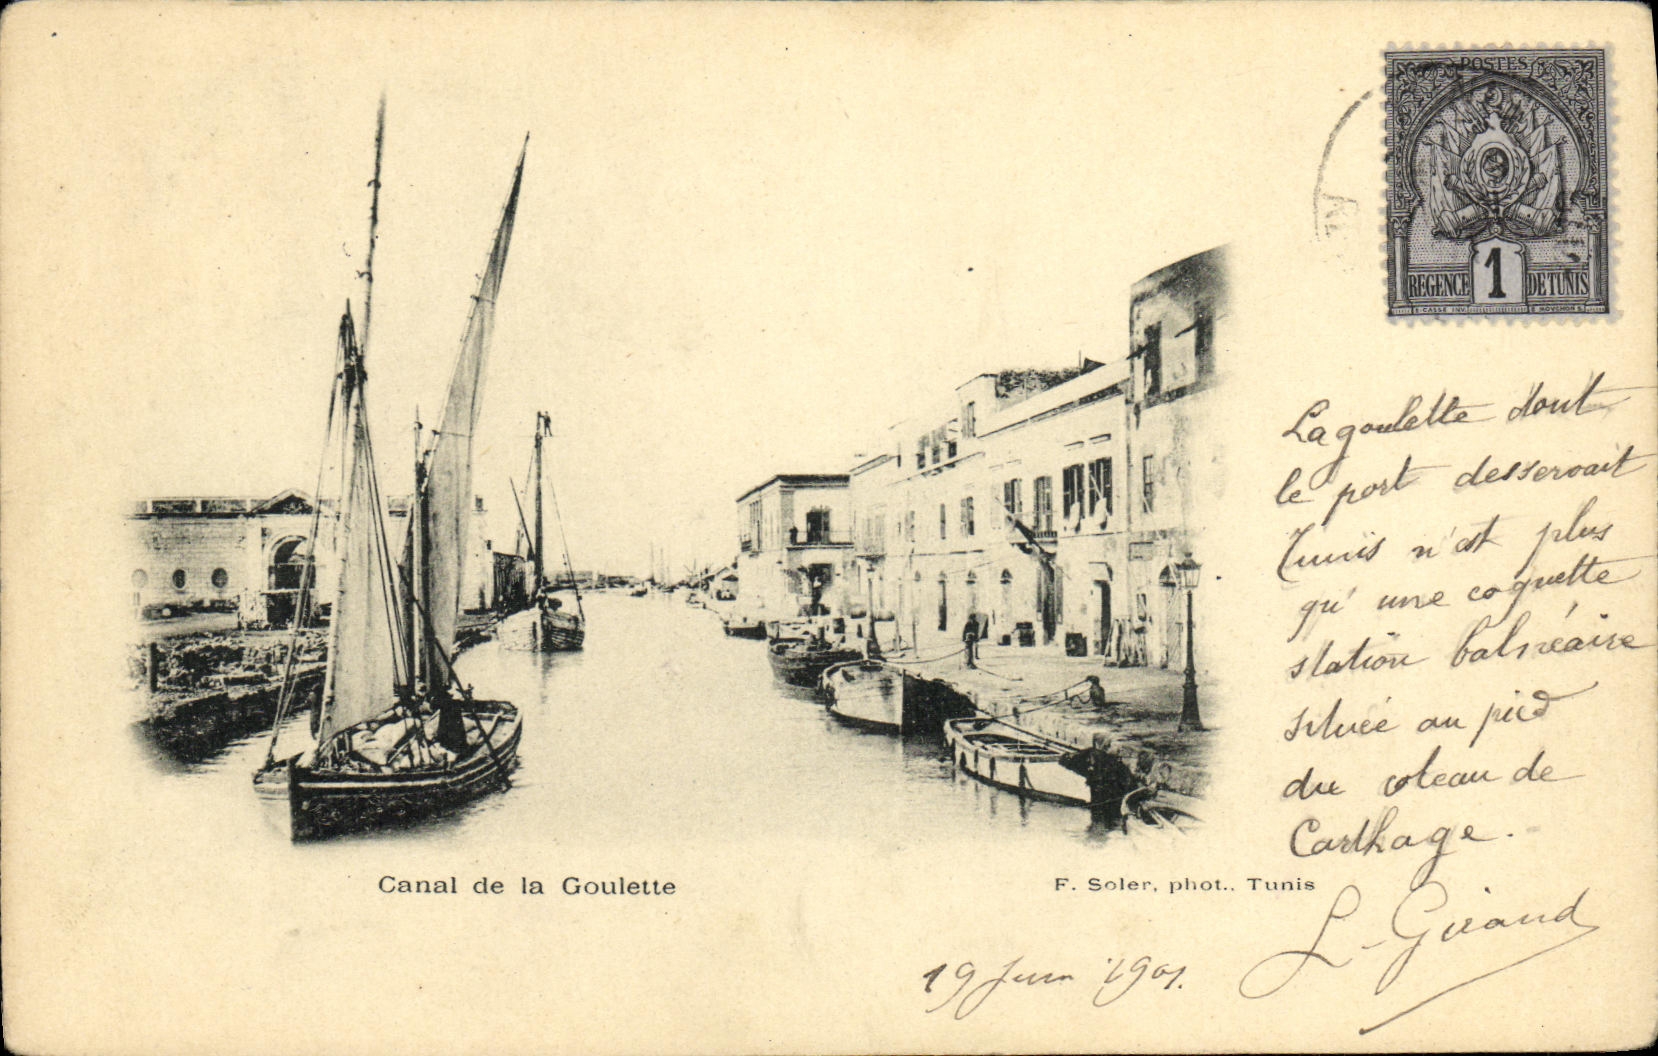 POSTES
REGENCE 1 DE TUNIS
E CASSE INV. E MOUCHON S.
La goulette dont
le port desservait
Tunis n'est plus
qu'une coquette
station balnéaire
située au pied
du coteau de
Carthage.
L. Giraud
19 Juin 1901.
Canal de la Goulette
F. Soler, phot., Tunis